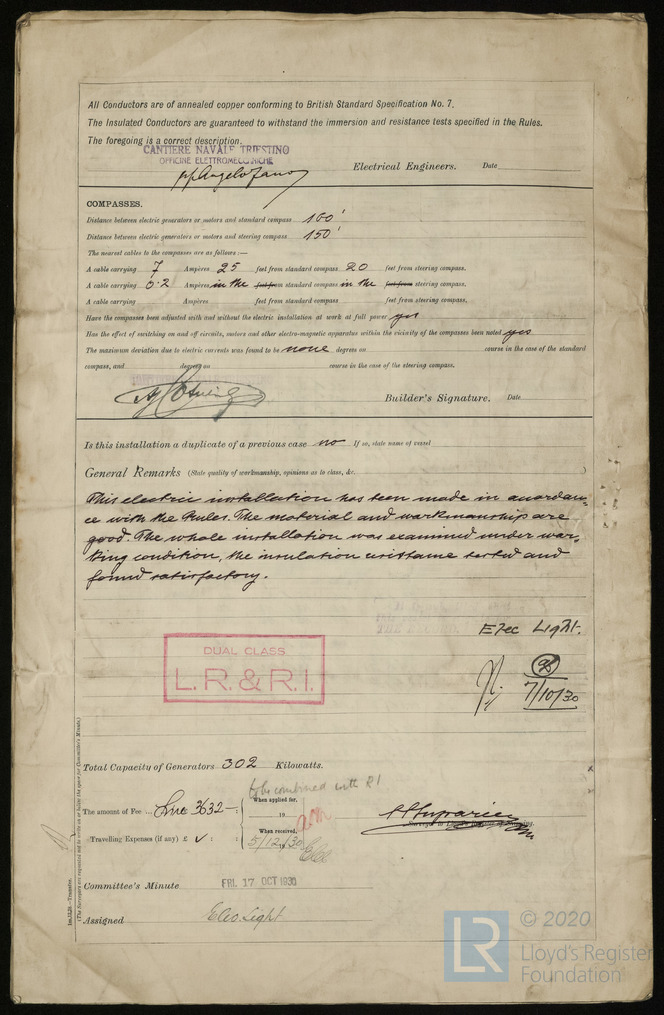 All Conductors are of annealed copper conforming to British Standard Specification No. 7.
The Insulated Conductors are guaranteed to withstand the immersion and resistance tests specified in the Rules.
The foregoing is a correct description.
CANTIERE NAVALE TRIESTINO
OFFICINE ELETTROMECCANICHE
Electrical Engineers. Date
COMPASSES.
Distance between electric generators or motors and standard compass 100'
Distance between electric generators or motors and steering compass 150'
The nearest cables to the compasses are as follows:—
A cable carrying 7 Ampères 25 feet from standard compass 20 feet from steering compass.
A cable carrying 0.2 Ampères in the feet from standard compass in the feet from steering compass.
A cable carrying Ampères feet from standard compass feet from steering compass.
Have the compasses been adjusted with and without the electric installation at work at full power yes
Has the effect of switching on and off circuits, motors and other electro-magnetic apparatus within the vicinity of the compasses been noted yes
The maximum deviation due to electric currents was found to be none degrees on course in the case of the standard
compass, and degrees on course in the case of the steering compass.
Builder's Signature. Date
Is this installation a duplicate of a previous case no If so, state name of vessel
General Remarks (State quality of workmanship, opinions as to class, &c. )
This electric installation has been made in accordan-
ce with the Rules. The material and workmanship are
good. The whole installation was examined under wor-
king condition, the insulation resistance tested and
found satisfactory.
Elec Light.
7/10/30
DUAL CLASS
L.R. & R.I.
Total Capacity of Generators 302 Kilowatts.
to be combined with RI
The amount of Fee ... Lire 3632—: When applied for,
19
When received,
Travelling Expenses (if any) £ ✓ : : 5/12/30
Committee's Minute FRI. 17 OCT 1930
Assigned Elec Light
(The Surveyors are requested not to write on or below the space for Committee's Minute.)
© 2020
LR
Lloyd's Register
Foundation